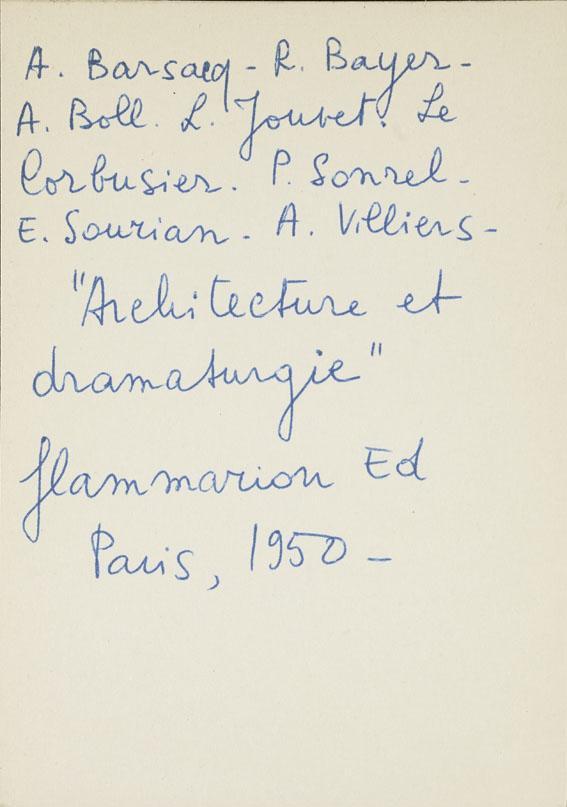 A. Barsacq - R. Bayer -
A. Boll. L. Jouvet. Le
Corbusier. P. Sonrel -
E. Sourian - A. Villiers -
"Architecture et
dramaturgie"
flammarion Ed
Paris, 1950 -